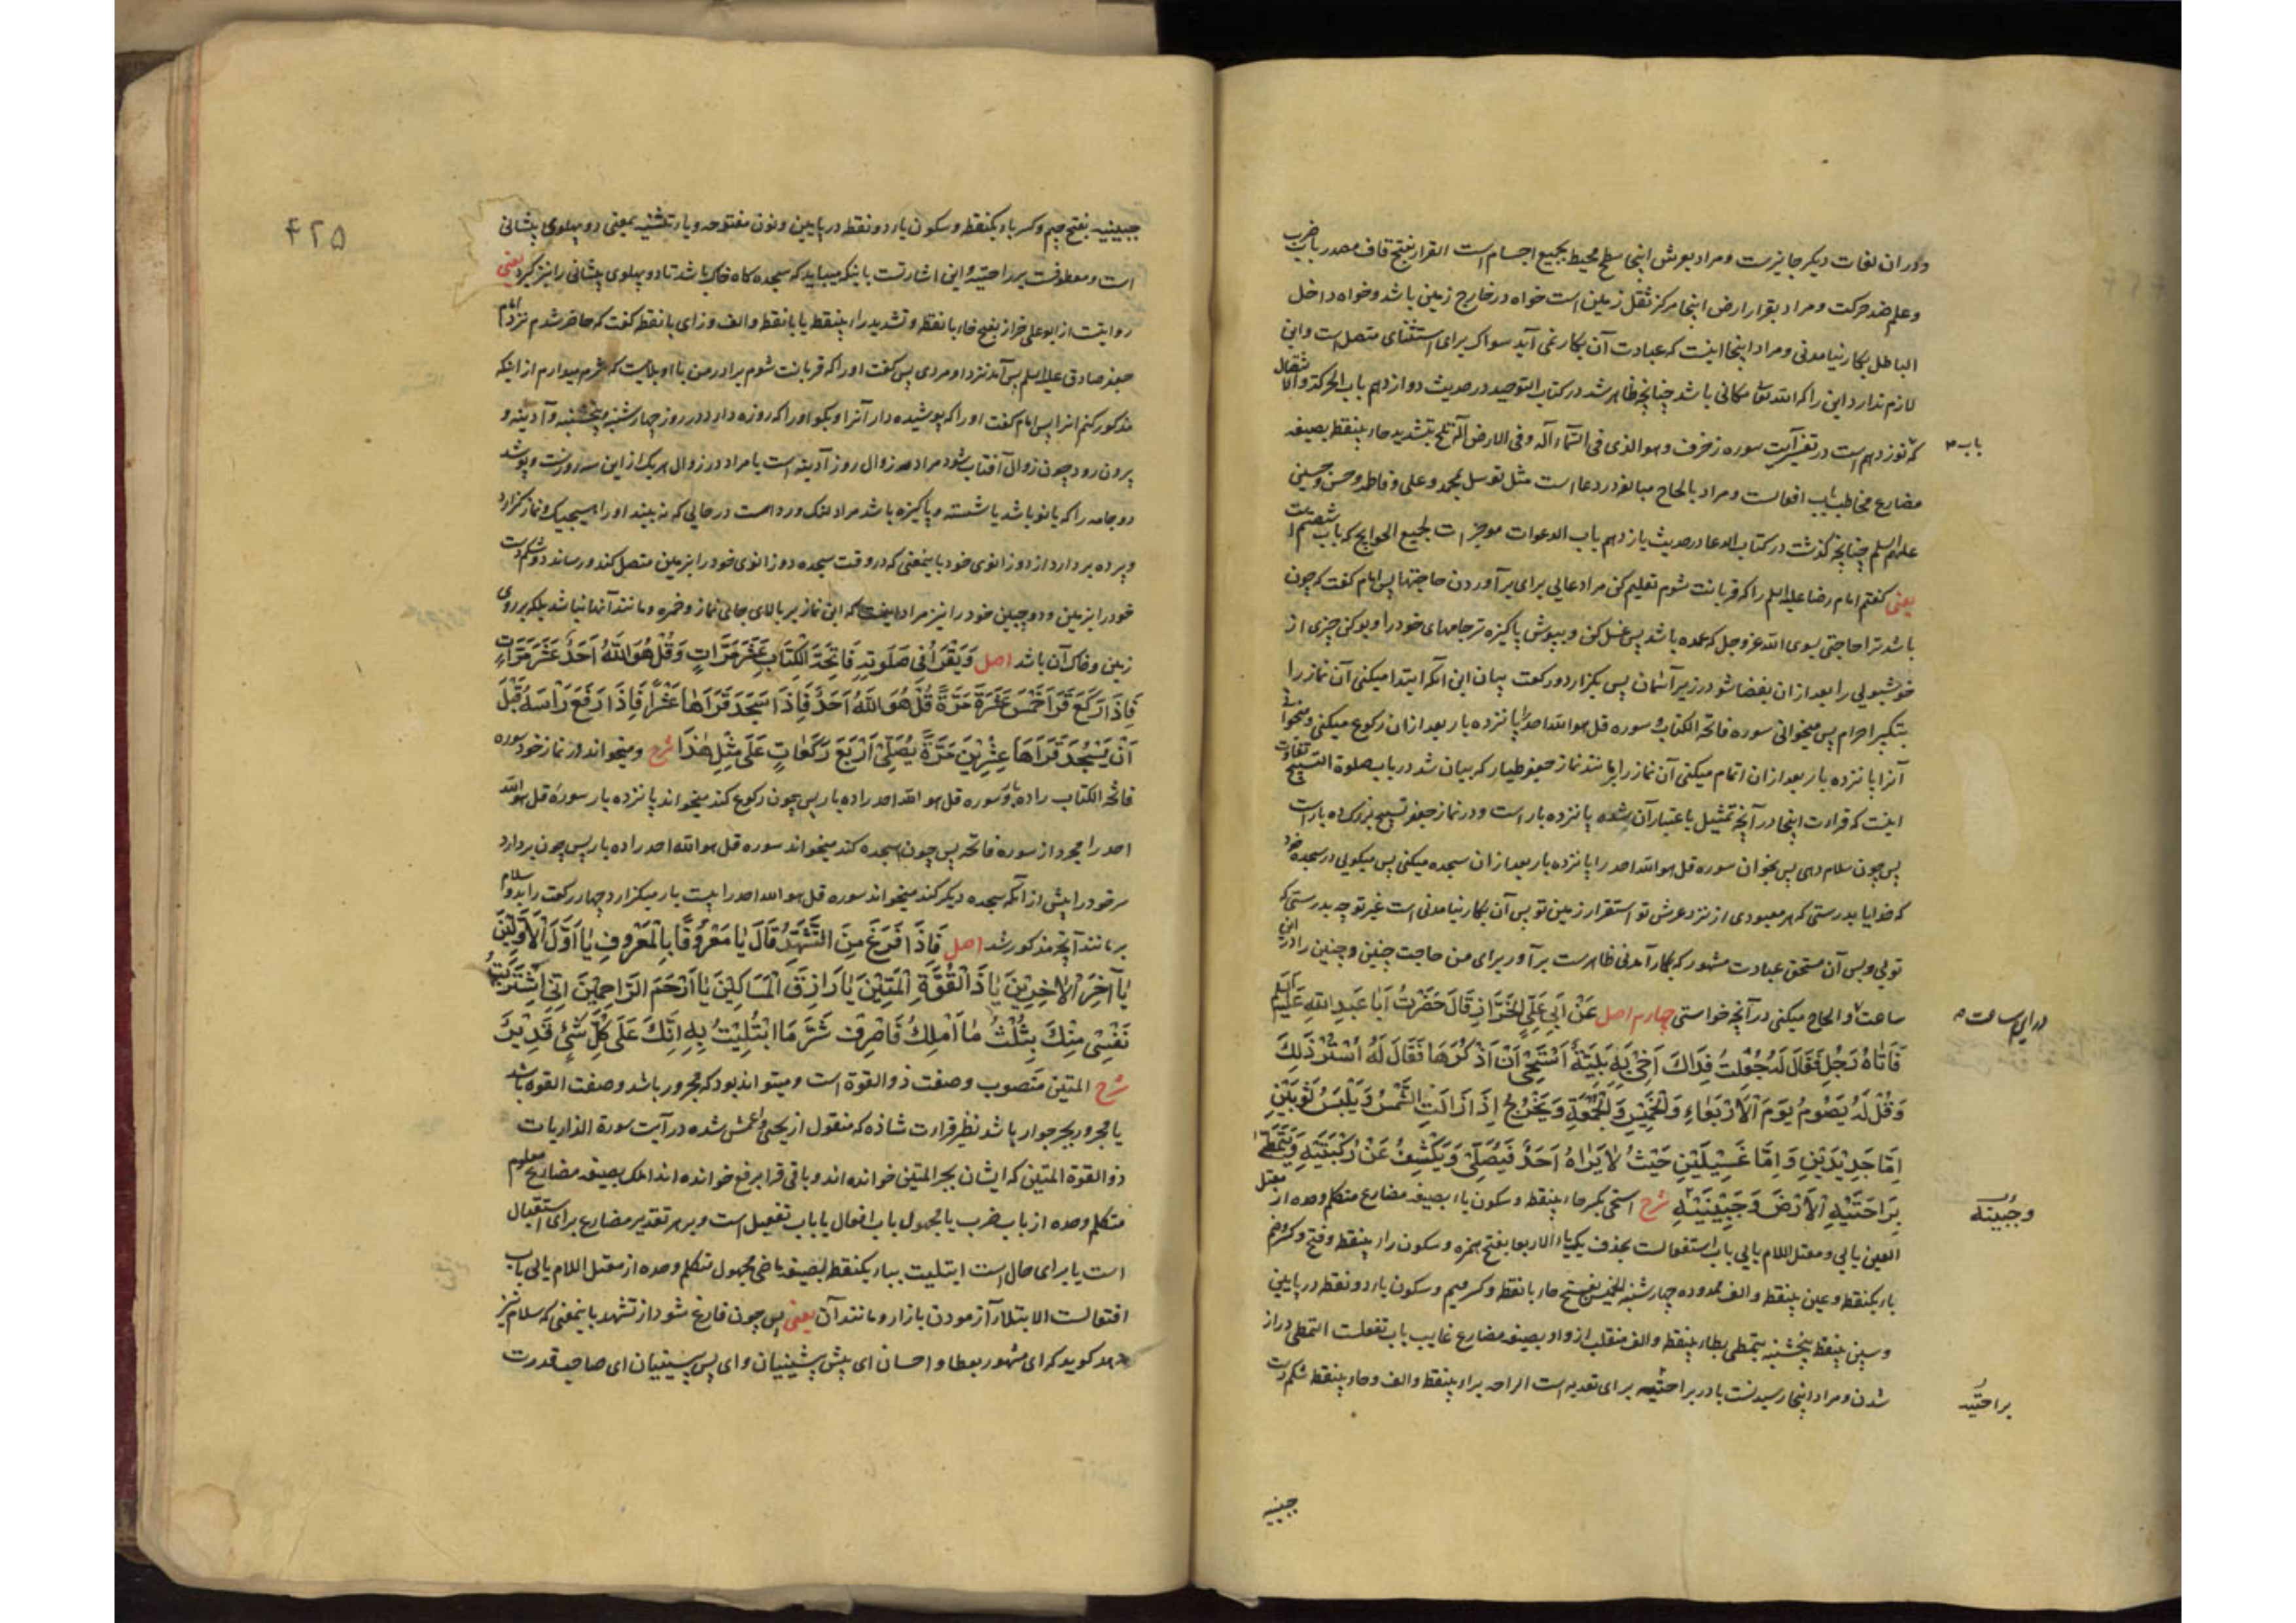 و در آن لغات دیگر جایزست و مراد بعرش اینجا سطح محیط بجمیع اجسام است القرار بفتح قاف مصدر باب ضرب
و علم ضد حرکت و مراد بقرار ارض اینجا مرکز ثقل زمین است خواه در خارج زمین باشد و خواه داخل
الباطل بکار نیامدنی و مراد اینجا اینست که عبادت آن بکار نمی آید سواک برای استثنای متصل است و این
لازم ندارد این را که الله تعالی مکانی باشد چنانچه ظاهر شد در کتاب التوحید در حدیث دوازدهم باب الحرکة والانتقال
که نوزدهم است در تفسیر آیت سوره زخرف و هو الذی فی السماء اله و فی الارض اله تلح بتشدید حاء بینقطه بصیغه
باب
مضارع مخاطب باب افعالست و مراد بالحاح مبالغه در دعا است مثل توسل بمحمد و علی و فاطمه و حسن و حسین
علیهم السلم چنانچه گذشت در کتاب الدعا در حدیث یازدهم باب الدعوات موجزات لجمیع الحوایج که باب شصتم است
یعنی گفتم امام رضا علیه السلم را که قربانت شوم تعلیم کن مرا دعایی برای برآوردن حاجتها پس امام گفت که چون
باشد ترا حاجتی بسوی الله عز و جل که عمده باشد پس غسل کن و بپوش پاکیزه تر جامهای خود را و بو کن چیزی از
خوشبویی را بعد از آن بفضا شو در زیر آسمان پس بگزار دو رکعت بیان این آنکه ابتدا میکنی آن نماز را
بتکبیر احرام پس میخوانی سوره فاتحة الکتاب و سوره قل هو الله احد را پانزده بار بعد از آن رکوع میکنی و میخوانی
آنرا پانزده بار بعد از آن اتمام میکنی آن نماز را بمانند نماز جعفر طیار که بیان شد در باب صلوة التسبیح تفاوت
اینست که قراءت اینجا در آنچه تمثیل باعتبار آن شده پانزده بار است و در نماز جعفر تسبیح بزرگ ده بار است
پس چون سلام دهی پس بخوان سوره قل هو الله احد را پانزده بار بعد از آن سجده میکنی پس میگویی در سجده خود
که خدایا بدرستی که هر معبودی از نزد عرش تو استقرار زمین تو پس آن بکار نیامدنی است غیر تو چه بدرستی که
تویی و بس آن مستحق عبادت مشهور که بکار آمدنی ظاهرست برآور برای من حاجت چنین و چنین را در این
ساعت و الحاح میکنی در آنچه خواستی چهارم اصل عَنْ أَبِي عَلِيٍّ الْخَزَّازِ قَالَ حَضَرْتُ أَبَا عَبْدِ اللهِ عَلَيْهِ السَّلَمُ
در این ساعت
فَأَتَاهُ رَجُلٌ فَقَالَ لَهُ جُعِلْتُ فِدَاكَ أَخِي بِهِ بَلِيَّةٌ أَسْتَحْيِي أَنْ أَذْكُرَهَا فَقَالَ لَهُ اسْتُرْ ذَلِكَ
وَقُلْ لَهُ يَصُومُ يَوْمَ الْأَرْبَعَاءِ وَالْخَمِيسِ وَالْجُمُعَةِ وَيَخْرُجُ إِذَا زَالَتِ الشَّمْسُ وَيَلْبَسُ ثَوْبَيْنِ
إِمَّا جَدِيدَيْنِ وَإِمَّا غَسِيلَيْنِ حَيْثُ لَا يَرَاهُ أَحَدٌ فَيُصَلِّي وَيَكْشِفُ عَنْ رُكْبَتَيْهِ وَيَتَمَطَّى
بِرَاحَتَيْهِ الْأَرْضَ وَجَبِينَيْهِ شرح استحی بکسر حاء بینقطه و سکون یاء بصیغه مضارع متکلم وحده از معتل
وجبینیه
العین یایی و معتل اللام یایی باب استفعالست بحذف یک یاء الاربعا بفتح همزه و سکون راء بینقطه و فتح و کسر و ضم
باء یکنقطه و عین بینقطه و الف ممدوده چهارشنبه الخمیس بفتح خاء بانقطه و کسر میم و سکون یاء دو نقطه در پایین
و سین بینقطه پنجشنبه یتمطی بطاء بینقطه و الف منقلب از واو بصیغه مضارع غایب باب تفعلست التمطی دراز
شدن و مراد اینجا رسیدنست با در براحتیه برای تعدیه است الراحه براء بینقطه و الف و حاء بینقطه شکم دست
براحتیه
جبینیه
۴۲۵
جبینیه بفتح جیم و کسر باء یکنقطه و سکون یاء دو نقطه در پایین و نون مفتوحه و یاء تثنیه بمعنی دو پهلوی پیشانی
است و معطوفست بر راحتیه و این اشارتست باینکه میباید که سجده گاه خاک باشد تا دو پهلوی پیشانی را نیز گیرد یعنی
روایتست از ابو علی خراز بفتح خاء بانقطه و تشدید راء بینقطه یا بانقطه و الف و زای بانقطه گفت که حاضر شدم نزد امام
جعفر صادق علیه السلم پس آمد نزد او مردی پس گفت او را که قربانت شوم برادر من با او بلاییست که شرم میدارم از اینکه
مذکور کنم انرا پس امام گفت او را که پوشیده دار آنرا و بگو او را که روزه دارد در روز چهارشنبه و پنجشنبه و آدینه و
بیرون رود چون زوال آفتاب شود مراد زوال روز آدینه است یا مراد در زوال هر یک از این سه روزست و پوشد
دو جامه را که یا نو باشد یا شسته و پاکیزه باشد مراد لنگ و رداست در حالی که نه بیند او را هیچیک و نماز گزارد
و پرده بردارد از دو زانوی خود باینمعنی که در وقت سجده دو زانوی خود را بزمین متصل کند و رساند دو شکم دست
خود را بزمین و دو جبین خود را نیز مراد اینست که این نماز بر بالای جای نماز و خمره و مانند آنها نباشد بلکه بر روی
زمین و خاک آن باشد اصل وَيَقْرَأُ فِي صَلَوتِهِ فَاتِحَةَ الْكِتَابِ عَشْرَ مَرَّاتٍ وَقُلْ هُوَ اللهُ أَحَدٌ عَشْرَ مَرَّاتٍ
فَإِذَا رَكَعَ قَرَأَ خَمْسَ عَشْرَةَ مَرَّةً قُلْ هُوَ اللهُ أَحَدٌ فَإِذَا سَجَدَ قَرَأَهَا عَشْرًا فَإِذَا رَفَعَ رَأْسَهُ قَبْلَ
أَنْ يَسْجُدَ قَرَأَهَا عِشْرِينَ مَرَّةً يُصَلِّي أَرْبَعَ رَكَعَاتٍ عَلَى مِثْلِ هَذَا شرح و میخواند در نماز خود سوره
فاتحة الکتاب را ده بار و سوره قل هو الله احد را ده بار پس چون رکوع کند میخواند پانزده بار سوره قل هو الله
احد را مجرد از سوره فاتحه پس چون سجده کند میخواند سوره قل هو الله احد را ده بار پس چون بردارد
سر خود را پیش از آنکه سجده دیگر کند میخواند سوره قل هو الله احد را بیست بار میگزارد چهار رکعت را بدو سلام
بر مانند آنچه مذکور شد اصل فَإِذَا فَرَغَ مِنَ التَّشَهُّدِ قَالَ يَا مَعْرُوفًا بِالْمَعْرُوفِ يَا أَوَّلَ الْأَوَّلِينَ
يَا آخِرَ الْآخِرِينَ يَا ذَا الْقُوَّةِ الْمَتِينَ يَا رَازِقَ الْمَسَاكِينَ يَا أَرْحَمَ الرَّاحِمِينَ إِنِّي اشْتَرَيْتُ
نَفْسِي مِنْكَ بِثُلْثِ مَا أَمْلِكُ فَاصْرِفْ شَرَّ مَا ابْتُلِيتُ بِهِ إِنَّكَ عَلَى كُلِّ شَيْءٍ قَدِيرٌ
شرح المتین منصوب و صفت ذو القوة است و میتواند بود که مجرور باشد و صفت القوه باشد
یا مجرور بجر جوار باشد نظیر قراءت شاذه که منقول از یحیی و اعمش شده در آیت سورة الذاریات
ذو القوة المتین که ایشان بجر المتین خوانده اند و باقی قرا برفع خوانده اند املک بصیغه مضارع معلوم
متکلم وحده از باب ضرب یا مجهول باب افعال یا باب تفعیل است و بر هر تقدیر مضارع برای استقبال
است یا برای حال است ابتلیت بباء یکنقطه بصیغه ماضی مجهول متکلم وحده از معتل اللام یایی باب
افتعالست الابتلاء آزمودن بازار و مانند آن یعنی پس چون فارغ شود از تشهد باینمعنی که سلام نیز
دهد گوید که ای مشهور بعطا و احسان ای پیش پیشینیان و ای پس پسینیان ای صاحب قدرت